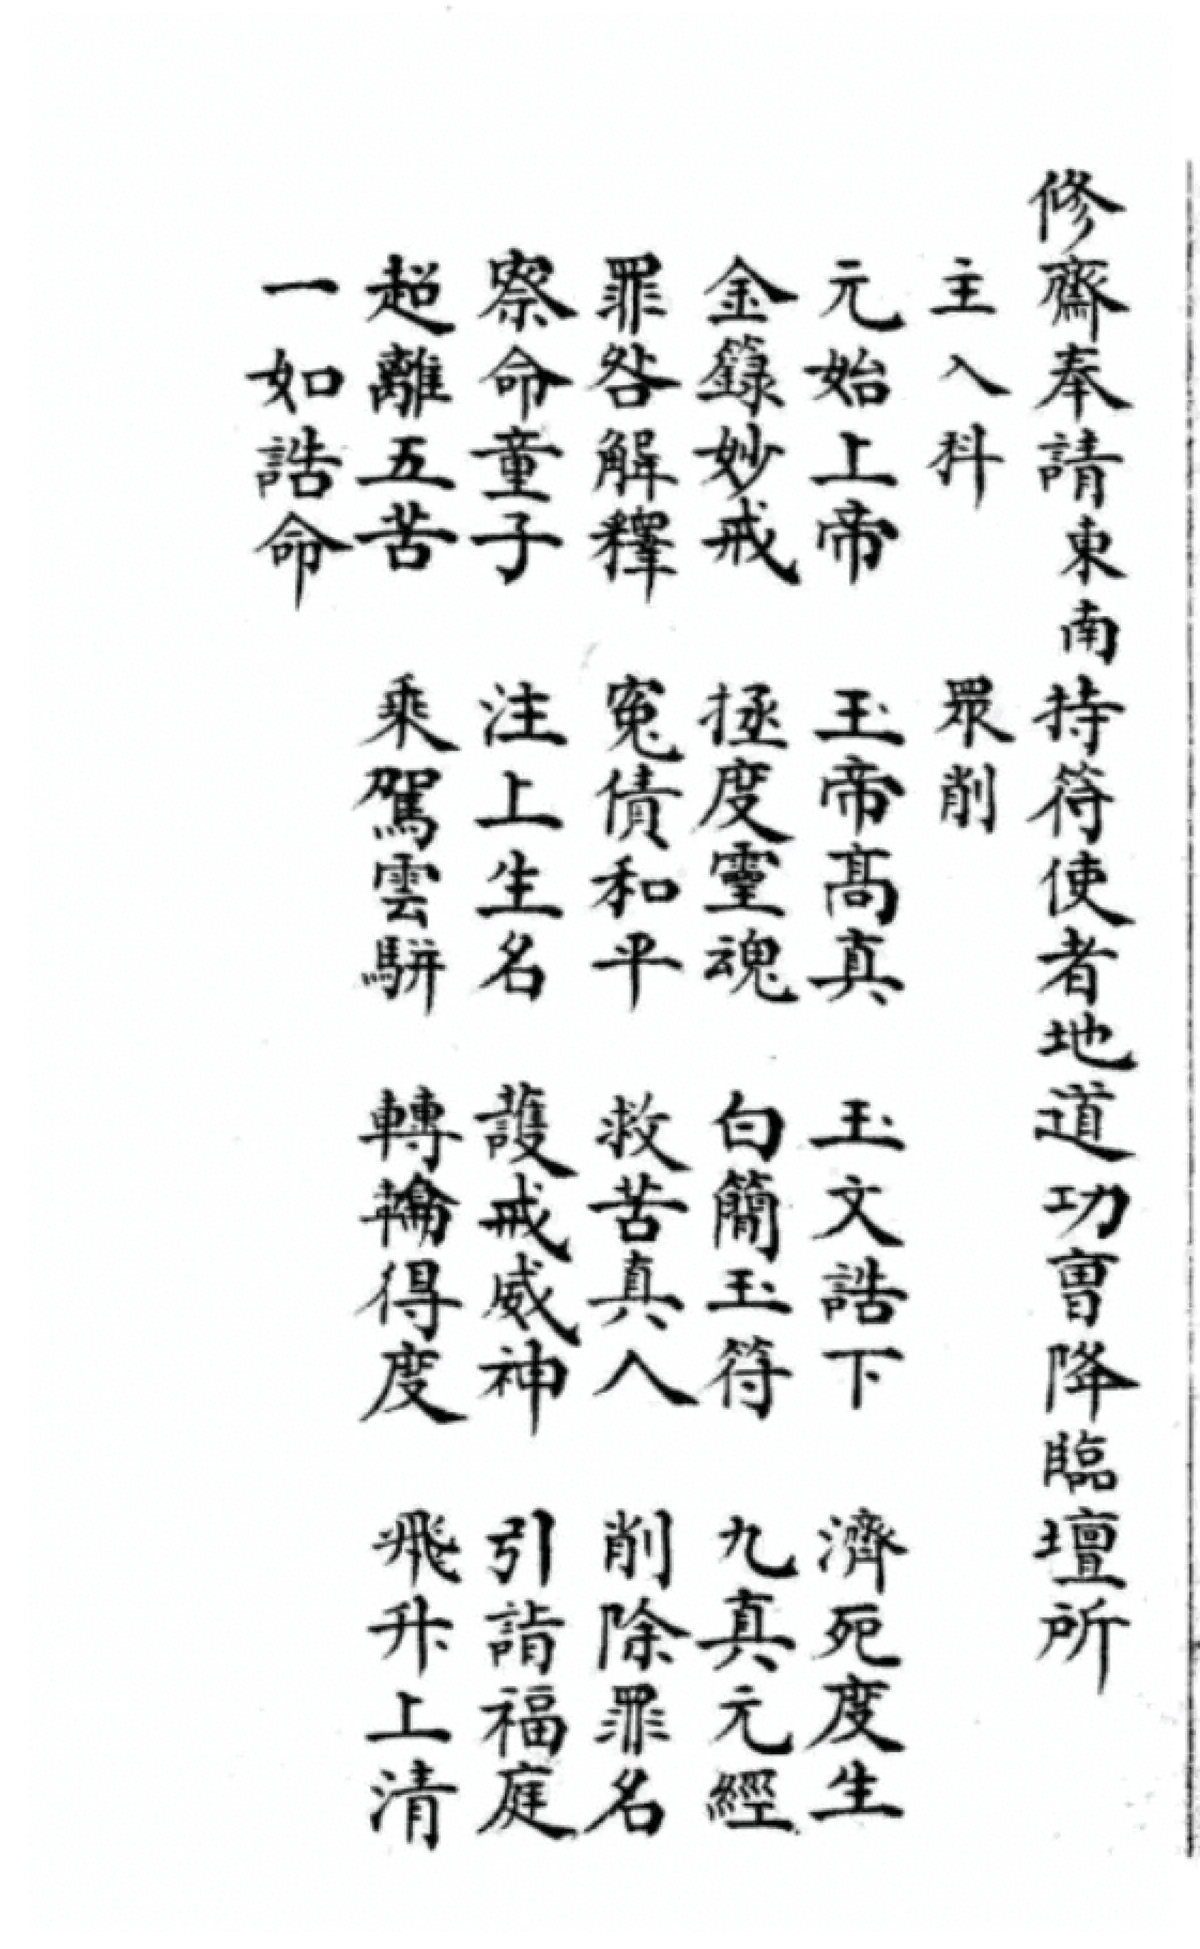 修齋奉請東南持符使者地道功曹降臨壇所
主入科 眾削
元始上帝 玉帝髙真 玉文誥下 濟死度生
金籙妙戒 拯度霊魂 白簡玉符 九真元經
罪咎解釋 寃債和平 救苦真人 削除罪名
察命童子 注上生名 護戒威神 引詣福庭
超離五苦 乘駕雲駢 轉輪得度 飛升上清
一如誥命